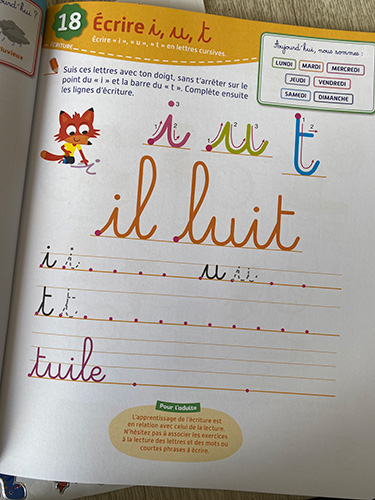 18 Écrire i, u, t
ÉCRITURE Écris « i », « u », « t » en lettres cursives.
Aujourd'hui, nous sommes :
LUNDI MARDI MERCREDI
JEUDI VENDREDI
SAMEDI DIMANCHE
Suis ces lettres avec ton doigt, sans t'arrêter sur le
point du « i » et la barre du « t ». Complète ensuite
les lignes d'écriture.
i u t
il luit
i i u u
t t
tuile
Pour l'adulte
L'apprentissage de l'écriture est
en relation avec celui de la lecture.
N'hésitez pas à associer les exercices
à la lecture des lettres et des mots ou
courtes phrases à écrire.